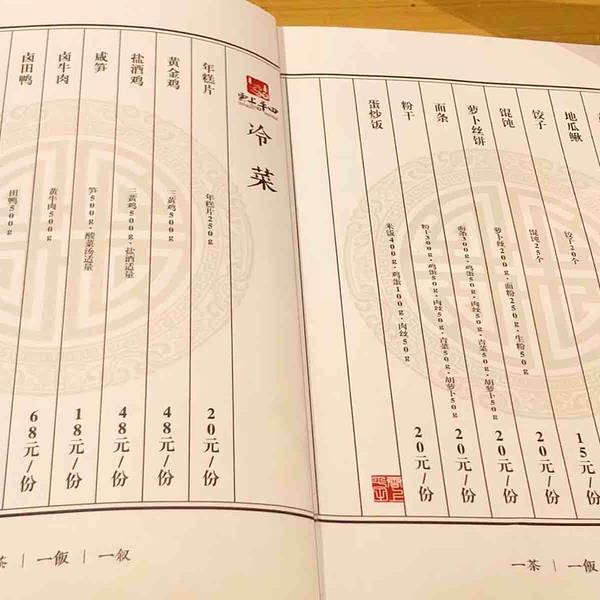 地瓜鳅
饺子
饺子20个
15元/份
馄饨
馄饨25个
20元/份
萝卜丝饼
萝卜丝200g·面粉250g·生粉50g
20元/份
面条
面条300g·鸡蛋50g·肉丝50g·青菜50g·胡萝卜50g
20元/份
粉干
粉干300g·鸡蛋50g·肉丝50g·青菜50g·胡萝卜50g
20元/份
蛋炒饭
米饭400g·鸡蛋100g·肉丝50g
一茶 | 一飯
冷菜
年糕片
年糕片250g
20元/份
黄金鸡
三黄鸡500g
48元/份
盐酒鸡
三黄鸡500g·盐酒适量
48元/份
咸笋
笋500g·酸菜汤适量
18元/份
卤牛肉
黄牛肉500g
68元/份
卤田鸭
田鸭500g
茶 | 一飯 | 一叙